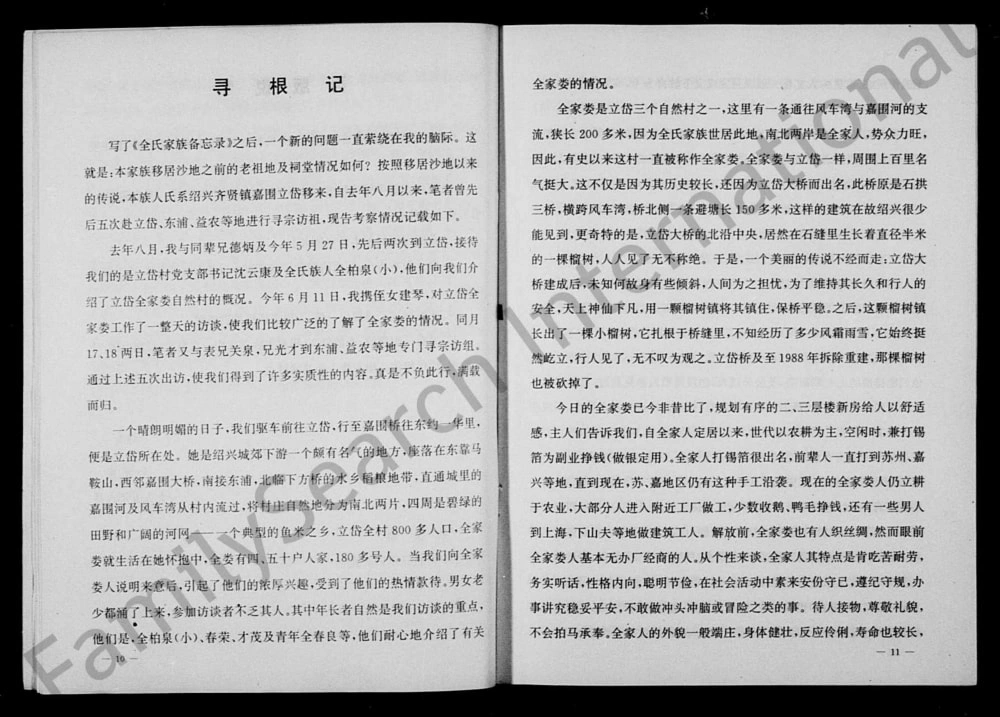 寻根记
写了《全氏家族备忘录》之后，一个新的问题一直萦绕在我的脑际。这
就是：本家族移居沙地之前的老祖地及祠堂情况如何？按照移居沙地以来
的传说，本族人氏系绍兴齐贤镇嘉围立岱移来，自去年八月以来，笔者曾先
后五次赴立岱、东浦、益农等地进行寻宗访祖，现告考察情况记载如下。
去年八月，我与同辈兄德炳及今年5月27日，先后两次到立岱，接待
我们的是立岱村党支部书记沈云康及全氏族人全柏泉（小），他们向我们介
绍了立岱全家娄自然村的概况。今年6月11日，我携侄女建琴，对立岱全
家娄工作了一整天的访谈，使我们比较广泛的了解了全家娄的情况。同月
17、18两日，笔者又与表兄关泉，兄光才到东浦、益农等地专门寻宗访组。
通过上述五次出访，使我们得到了许多实质性的内容。真是不负此行，满载
而归。
一个晴朗明媚的日子，我们驱车前往立岱，行至嘉围桥往东约一华里，
便是立岱所在处。她是绍兴城郊下游一个颇有名气的地方，座落在东靠马
鞍山，西邻嘉围大桥，南接东浦，北临下方桥的水乡稻粮地带，直通城里的
嘉围河及风车湾从村内流过，将村庄自然地分为南北两片，四周是碧绿的
田野和广阔的河网————一个典型的鱼米之乡，立岱全村800多人口，全家
娄就生活在她怀抱中，全娄有四、五十户人家，180多号人。当我们向全家
娄人说明来意后，引起了他们的浓厚兴趣，受到了他们的热情款待。男女老
少都涌了上来，参加访谈者不乏其人。其中年长者自然是我们访谈的重点，
他们是，全柏泉（小）、春荣、才茂及青年全春良等，他们耐心地介绍了有关
— 10 —
全家娄的情况。
全家娄是立岱三个自然村之一，这里有一条通往风车湾与嘉围河的支
流，狭长200多米，因为全氏家族世居此地，南北两岸是全家人，势众力旺，
因此，有史以来这村一直被称作全家娄。全家娄与立岱一样，周围上百里名
气挺大。这不仅是因为其历史较长，还因为立岱大桥而出名，此桥原是石拱
三桥，横跨风车湾，桥北侧一条避塘长150多米，这样的建筑在故绍兴很少
能见到，更奇特的是，立岱大桥的北沿中央，居然在石缝里生长着直径半米
的一棵榴树，人人见了无不称绝。于是，一个美丽的传说不经而走：立岱大
桥建成后，未知何故身有些倾斜，人间为之担忧，为了维持其长久和行人的
安全，天上神仙下凡，用一颗榴树镇将其镇住，保桥平稳。之后，这颗榴树镇
长出了一棵小榴树，它扎根于桥缝里，不知经历了多少风霜雨雪，它始终挺
然屹立，行人见了，无不叹为观之。立岱桥及至1988年拆除重建，那棵榴树
也被砍掉了。
今日的全家娄已今非昔比了，规划有序的二、三层楼新房给人以舒适
感，主人们告诉我们，自全家人定居以来，世代以农耕为主，空闲时，兼打锡
箔为副业挣钱（做银定用）。全家人打锡箔很出名，前辈人一直打到苏州、嘉
兴等地，直到现在，苏、嘉地区仍有这种手工沿袭。现在的全家娄人仍立耕
于农业，大部分人进入附近工厂做工，少数收鹅、鸭毛挣钱，还有一些男人
到上海，下山夫等地做建筑工人。解放前，全家娄也有人织丝绸，然而眼前
全家娄人基本无办厂经商的人。从个性来谈，全家人其特点是肯吃苦耐劳，
务实听话，性格内向，聪明节俭，在社会活动中素来安份守已，遵纪守规，办
事讲究稳妥平安，不敢做冲头冲脑或冒险之类的事。待人接物，尊敬礼貌，
不会拍马承奉。全家人的外貌一般端庄，身体健壮，反应伶俐，寿命也较长，
— 11 —
FamilySearch International